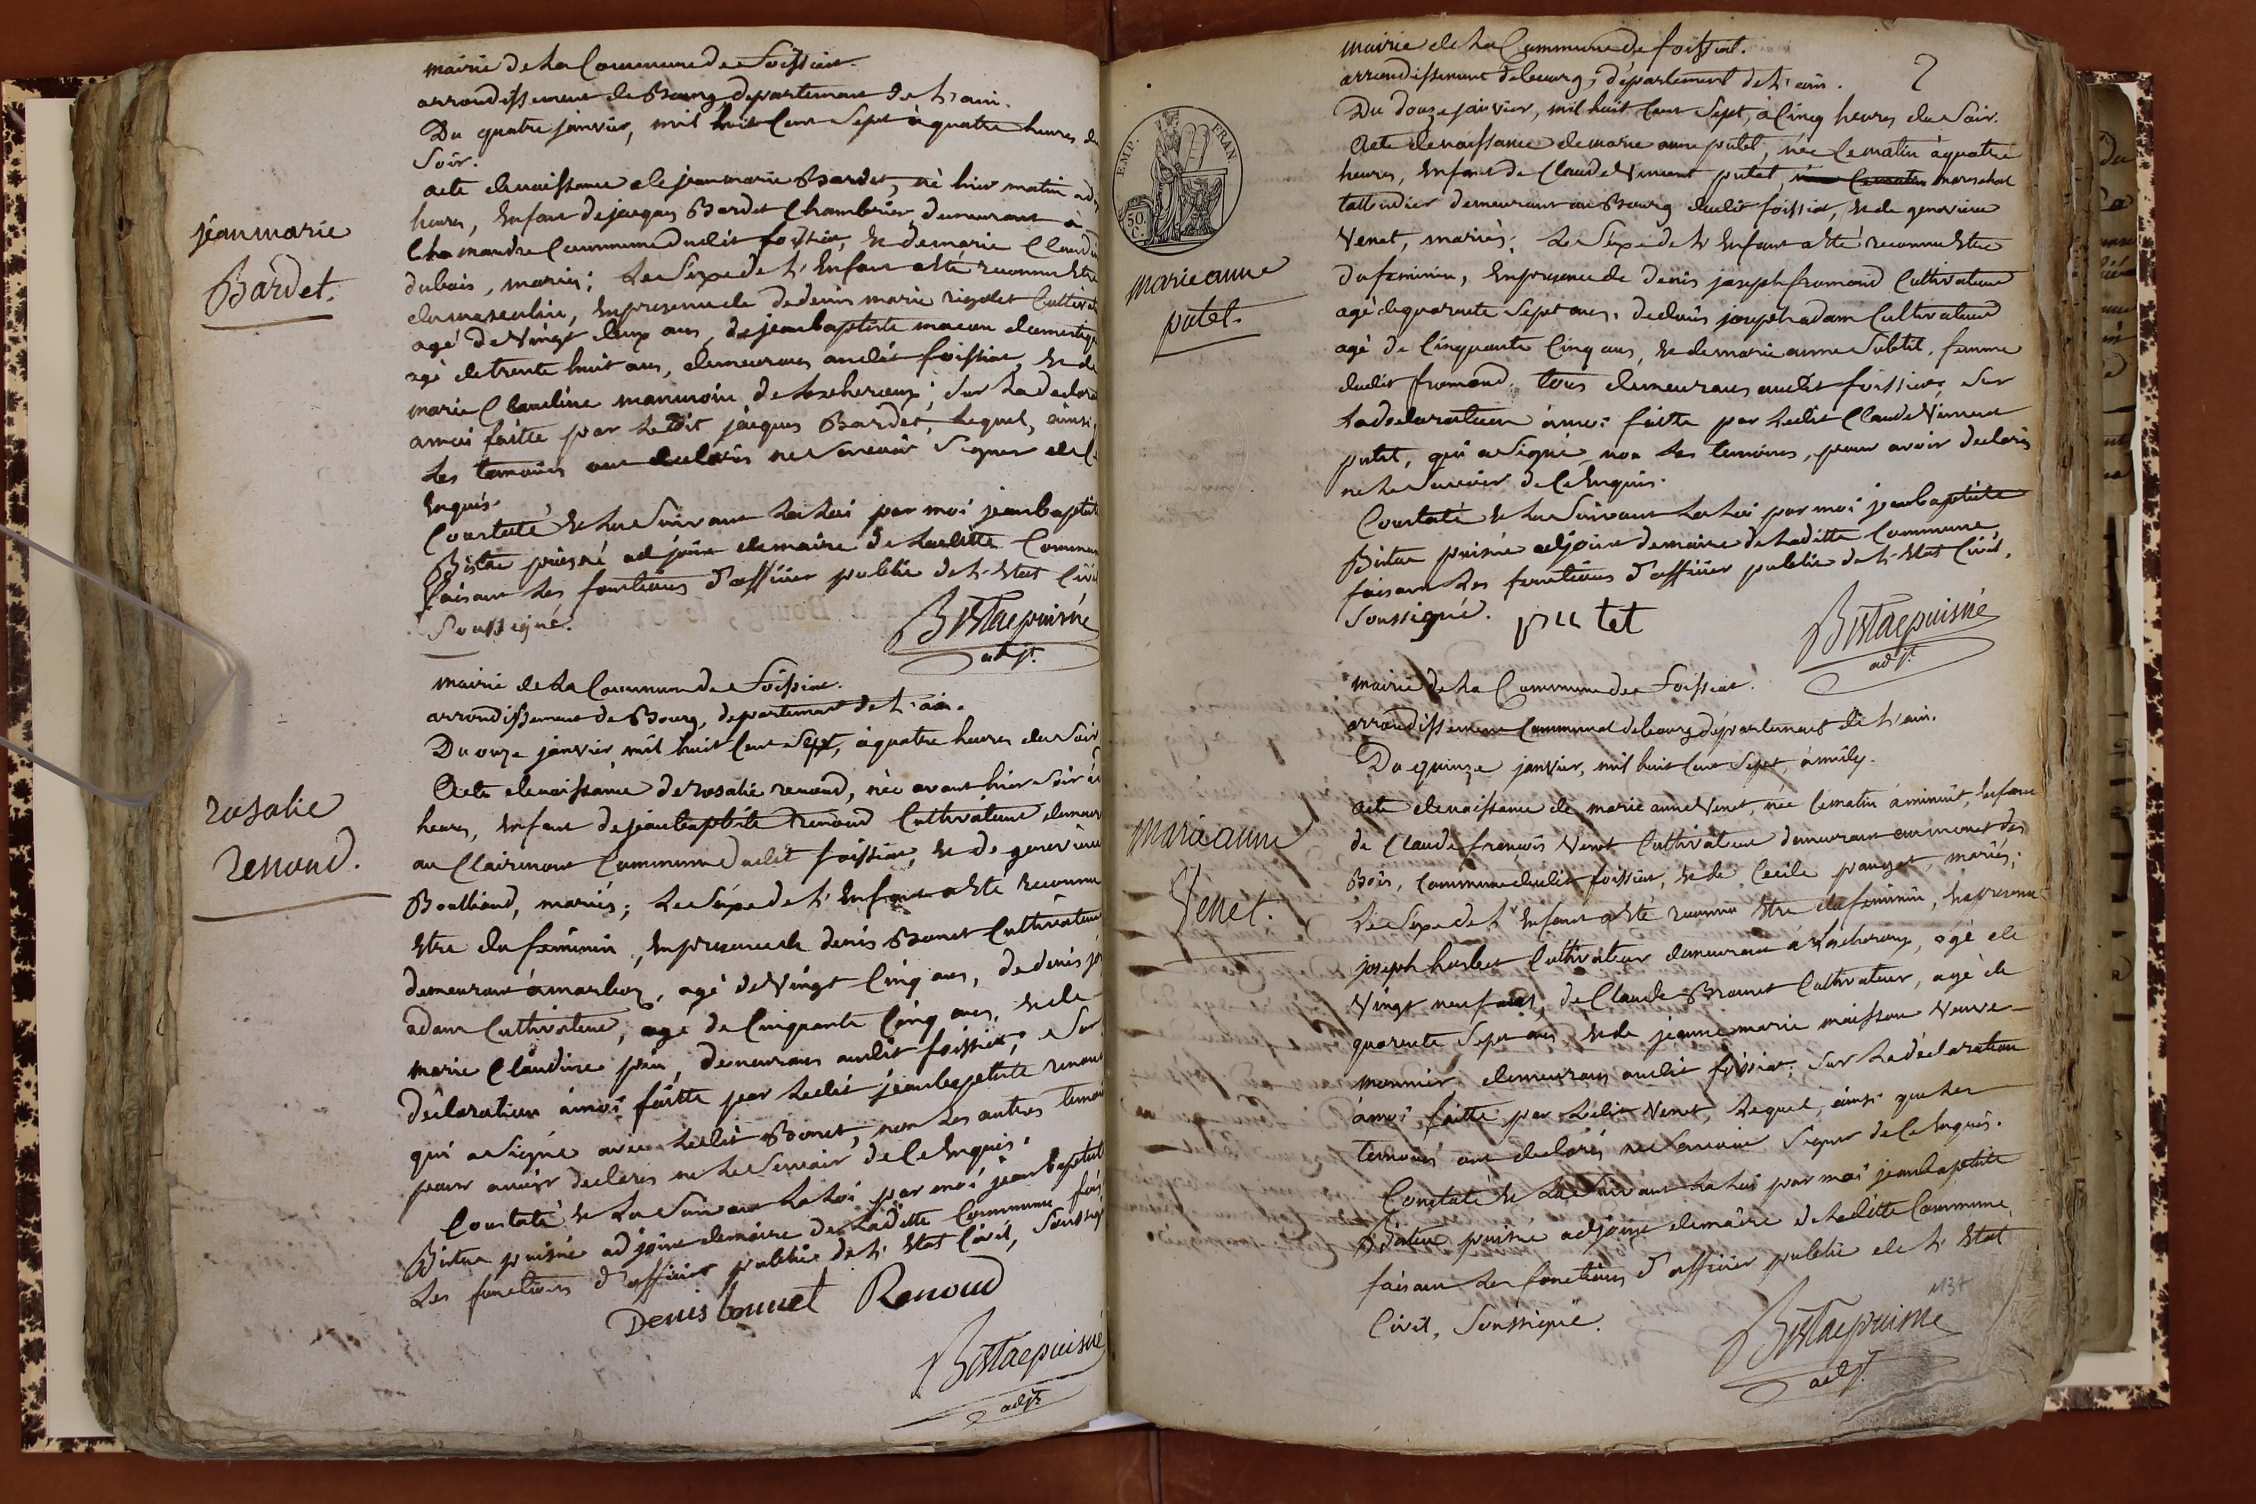 mairie de La Commune de Foissiat.
arrondissement de Bourg departement de L'ain.
Du quatre janvier, mil huit Cent Sept à quatre heures du
Soir.
acte de naissance de jean marie Bardet, né hier matin
heures, Enfant de jacques Bardet Chambrier demeurant à
Commune dudit foissiat, Et de marie Claudine
dubois, mariés; Le Sexe de L'Enfant a Eté reconnu Etre
du masculin, En presence de de denis marie rigolet Cultivat
agé de Vingt deux ans, de jean baptiste macon domestiqu
agé de trente huit ans, demeurans audit foissiat, Et de
marie Claudine de ; Sur La declara
a moi faitte par Ledit jacques Bardet, Lequel, ainsi
Les temoins ont declarés ne Scavoir Signer de Ce
Enquis.
Constaté Et Lu Suivant La Loi par moi jean baptiste
puisné adjoint de maire de Laditte Commune
faisant Les fonctions d'officier public de L'Etat Civil
Soussigné.
puisné
adjt.
jean marie
Bardet.
mairie de La Commune de Foissiat.
arrondissement de Bourg, departement de L'ain.
Du onze janvier, mil huit Cent Sept, à quatre heures du Soir
Acte de naissance de rosalie renoud, née avant hier Soir à
heures, Enfant de jean baptiste renoud Cultivateur demeur
au Clairmont Commune dudit foissiat, Et de genevieve
mariés; Le Sexe de L'Enfant a Eté reconnu
Etre du feminin, En presence de denis Bonet Cultivateur
demeurant à marboz, agé de Vingt Cinq ans, de denis jo
adam Cultivateur, agé de Cinquante Cinq ans, Et de
marie Claudine demeurans audit foissiat, Sur
declaration à moi faitte par Ledit jean baptiste renoud
qui a Signé avec Ledit Bonet, non Les autres temoi
pour avoir declarés ne Le Scavoir de Ce Enquis.
Constaté Et Lu Suivant La Loi par moi jean baptiste
puisné adjoint de maire de Laditte Commune fais
Les fonctions d'officier public de L'Etat Civil, Soussig
Denis bonnet Renoud
puisné
adjt.
rosalie
renoud.
mairie de La Commune de foissiat.
2
arrondissement de bourg, département de L'ain.
Du douze janvier, mil huit Cent Sept, à Cinq heures du Soir.
Acte de naissance de marie anne putet, née Ce matin à quatre
heures, Enfant de Claude Vincent putet, née Ce matin marechal
tallandier demeurant au Bourg dudit foissiat, Et de genevieve
Venet, mariés; Le Sexe de L'Enfant a Eté reconnu Etre
du feminin, En presence de denis joseph fromond Cultivateur
agé de quarante Sept ans. de denis joseph adam Cultivateur
agé de Cinquante Cinq ans, Et de marie anne femme
dudit fromond. tous demeurans audit foissiat. Sur
La declaration à moi faitte par Ledit Claude Vincent
putet, qui a Signé, non Les temoins, pour avoir declarés
ne Le Scavoir de Ce Enquis.
Constaté Et Lu Suivant La Loi par moi jean baptiste
puisné adjoint de maire de Laditte Commune
faisant Les fonctions d'officier public de L'Etat Civil,
Soussigné. putet
puisné
adjt.
EMP. FRAN.
50.
C.
marie anne
putet.
mairie de La Commune de Foissiat.
arrondissement Communal de bourg département de L'ain.
Du quinze janvier, mil huit Cent Sept, à midy.
acte de naissance de marie anne Venet, née Ce matin à minuit, Enfant
de Claude françois Venet Cultivateur demeurant au mont des
Bois, Commune dudit foissiat, Et de Cecile mariés;
Le Sexe de L'Enfant a Eté reconnu Etre du feminin, En presence
joseph Cultivateur demeurant à agé de
Vingt neuf ans, de Claude Cultivateur, agé de
quarante Sept ans Et de jeanne marie maisson Veuve
monnier demeurans audit foissiat, Sur La declaration
à moi faitte par Ledit Venet, Lequel, ainsi que Les
temoins ont declarés ne Scavoir Signer de Ce Enquis.
Constaté Et Lu Suivant La Loi par moi jean baptiste
puisné adjoint de maire de Laditte Commune,
faisant Les fonctions d'officier public de L'Etat
Civil, Soussigné.
puisné
adjt.
marie anne
Venet.